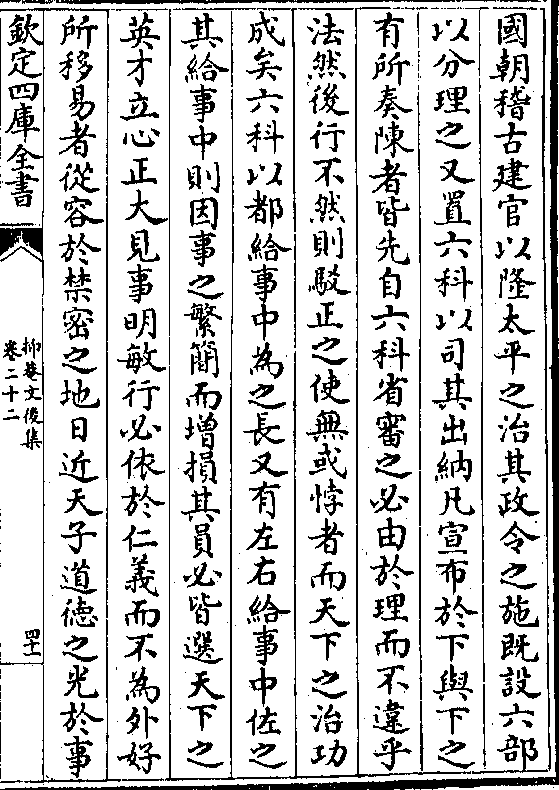 國朝稽古建官以隆太平之治其政令之施既設六部
以分理之又置六科以司其出納凡宣布於下與下之
有所奏陳者皆先自六科省審之必由於理而不違乎
法然後行不然則駁正之使無或悖者而天下之治功
成矣六科以都給事中為之長又有左右給事中佐之
其給事中則因事之繁簡而增損其員必皆選天下之
英才立心正大見事明敏行必依於仁義而不為外好
所移易者從容於禁密之地日近天子道德之光於事
欽定四庫全書
抑菴文後集
卷二十二
四十一